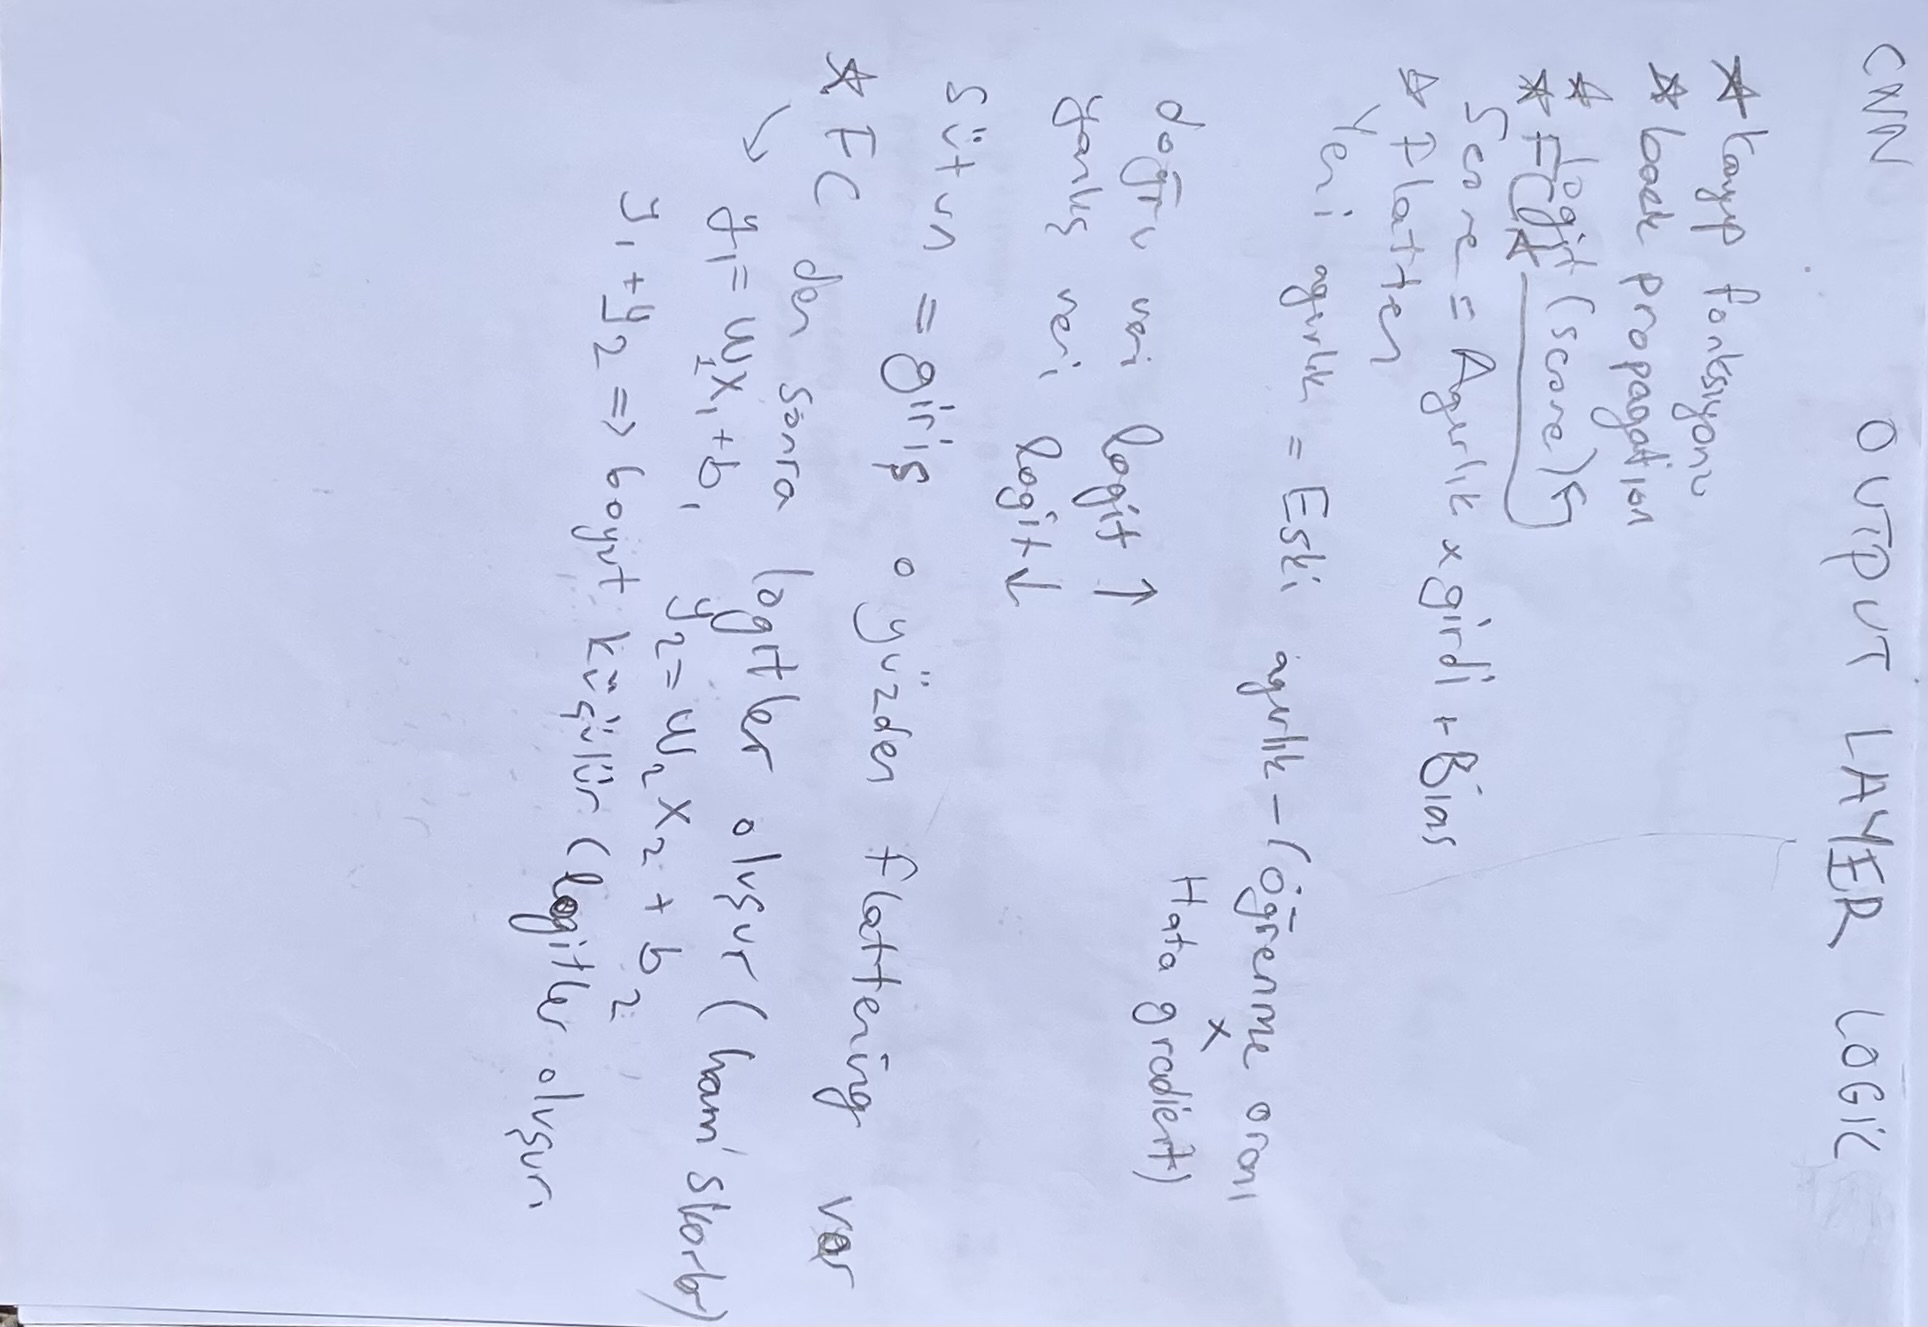 CNN OUTPUT LAYER LOGIC
☆ kayıp fonksiyonu
☆ back propagation
☆ logit (score)
☆ FC ☆
Score = Agırlık x girdi + Bias
☆ Flatten
Yeni agırlık = Eski agırlık - (öğrenme oranı
x
Hata gradient)
doğru veri logit ↑
yanlış veri logit ↓
Sütun = giriş o yüzden flattening var
☆ FC den sonra logitler oluşur (ham skorlar)
↘ y₁ = w₁x₁ + b₁ y₂ = w₂x₂ + b₂
y₁ + y₂ => boyut küçülür (logitler oluşur.